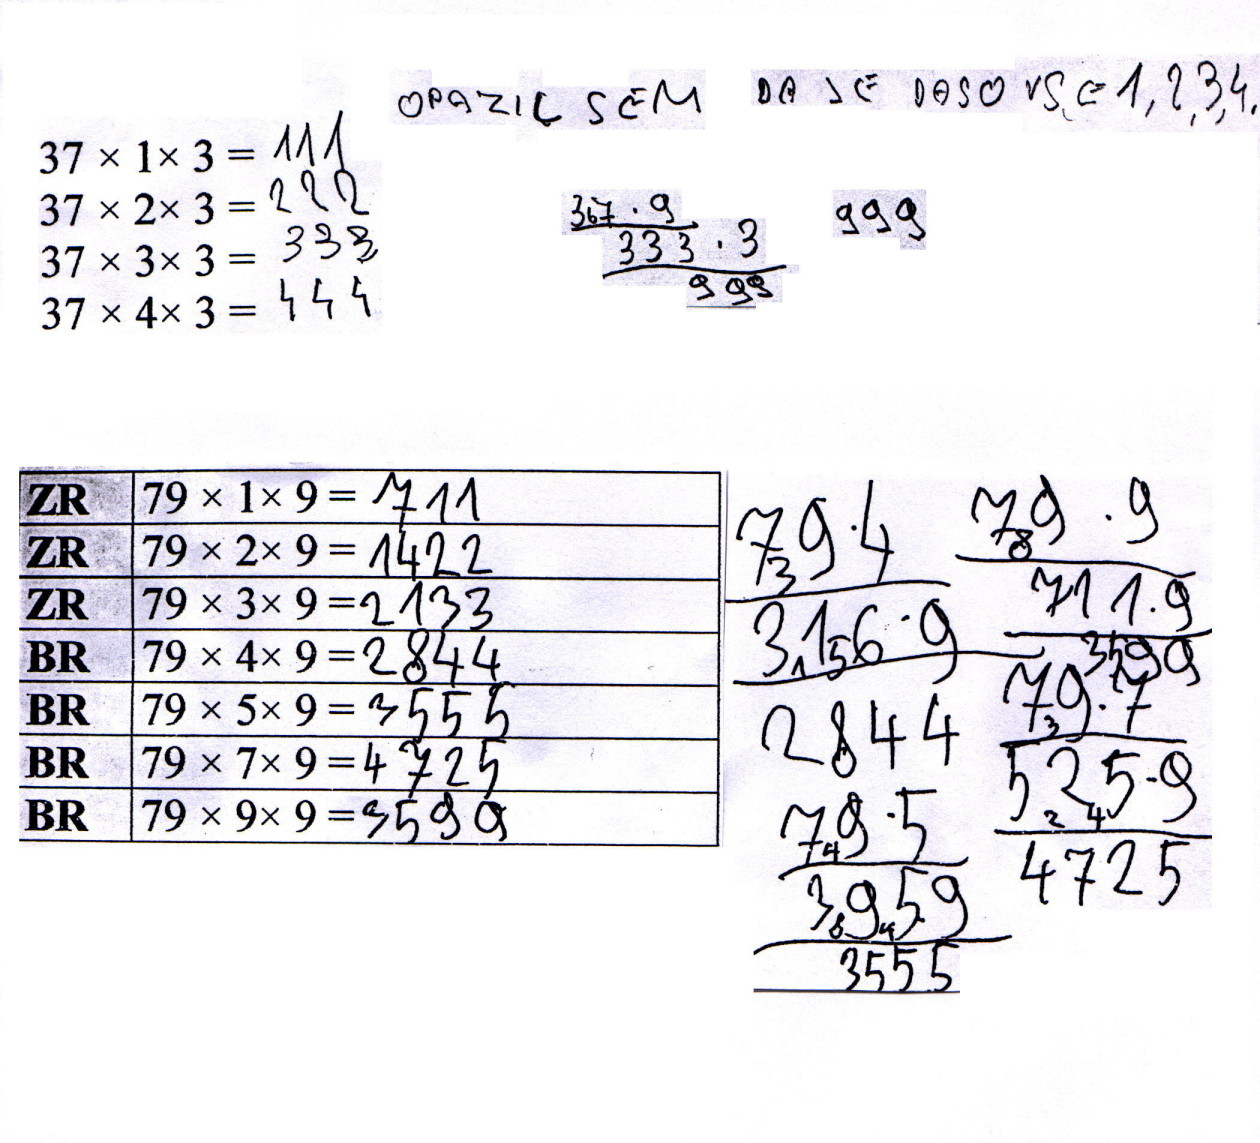 OPAZIL SEM DA SE DASO VSE 1, 2, 3, 4.
37 × 1× 3 = 111
37 × 2× 3 = 222
37 × 3× 3 = 333
37 × 4× 3 = 444
367 · 9
333 · 3
999
999
ZR 79 × 1× 9 = 711
ZR 79 × 2× 9 = 1422
ZR 79 × 3× 9 = 2133
BR 79 × 4× 9 = 2844
BR 79 × 5× 9 = 3555
BR 79 × 7× 9 = 4725
BR 79 × 9× 9 = 3599
793 · 4
31156 · 9
2844
794 · 5
389459
3555
798 · 9
711 · 9
3599
793 · 7
52245 · 9
4725